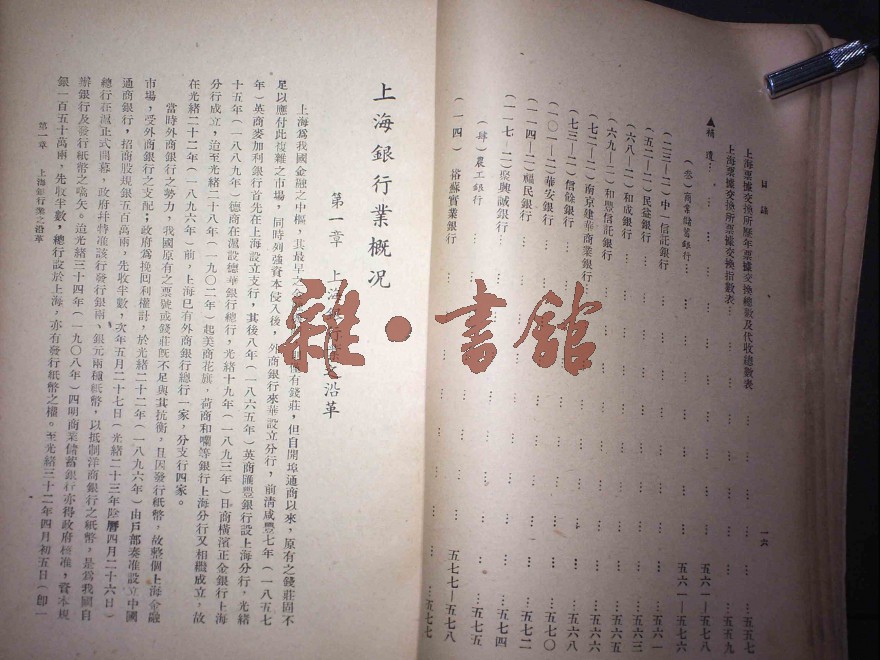 目錄
一六
上海票據交換所歷年票據交換總數及代收總數表……五五七
上海票據交換所票據交換指數表……五五九
▲補遺……五六一—五七八
(叁)商業儲蓄銀行……五六一—五七六
(二三—二)中一信託銀行……五六一
(五二—二)民益銀行……五六三
(六八—二)和成銀行……五六五
(六九—二)和豐信託銀行……五六六
(七二—二)南京建華商業銀行……五六六
(七三—二)信餘銀行……五六八
(一〇一—二)華安銀行……五七〇
(一一四—二)福民銀行……五七二
(一一七—二)聚興誠銀行……五七四
(肆)農工銀行……五七五
(一四)裕蘇實業銀行……五七七
五七七—五七八
上海銀行業概況
第一章 上海銀行業之沿革
上海爲我國金融之中樞,其最早之金融 有錢莊,但自開埠通商以來,原有之錢莊固不
足以應付此複雜之市場,同時列強資本侵入後,外商銀行來華設立分行,前清咸豐七年(一八五七
年)英商麥加利銀行首先在上海設立支行,其後八年(一八六五年)英商匯豐銀行設上海分行,光緒
十五年(一八八九年)德商在滬設德華銀行總行,光緒十九年(一八九三年)日商橫濱正金銀行上海
分行成立,迨至光緒二十八年(一九〇二年)起美商花旗,荷商和囒等銀行上海分行又相繼成立,故
在光緒二十二年(一八九六年)前,上海已有外商銀行總行一家,分支行四家。
當時外商銀行之勢力,我國原有之票號或錢莊旣不足與其抗衡,且因發行紙幣,故整個上海金融
市場,受外商銀行之支配;政府爲挽回利權計,於光緒二十二年(一八九六年)由戶部奏准設立中國
通商銀行,招商股規銀五百萬兩,先收半數,次年五月二十七日(光緒二十三年陰曆四月二十六日)
總行在滬正式開幕,政府幷特准該行發行銀兩、銀元兩種紙幣,以抵制洋商銀行之紙幣,是爲我國自
辦銀行及發行紙幣之嚆矢。迨光緒三十四年(一九〇八年)四明商業儲蓄銀行亦得政府核准,資本規
銀一百五十萬兩,先收半數,總行設於上海,亦有發行紙幣之權。至光緒三十二年四月初五日(卽一
第一章 上海銀行業之沿革
雜·書館